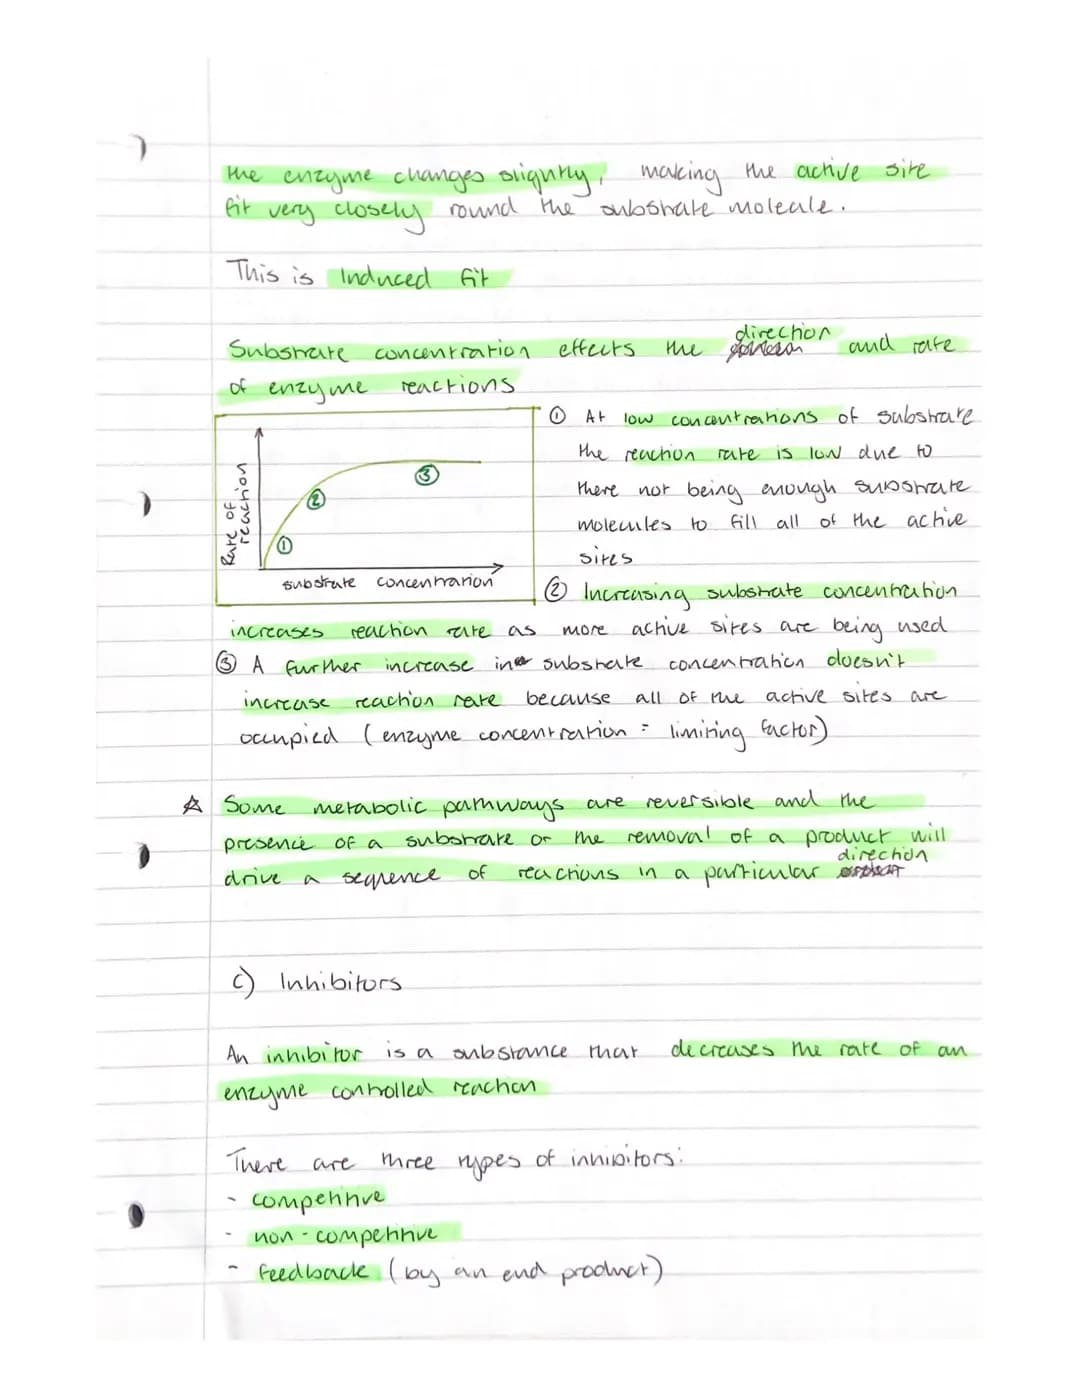 the enzyme changes slightly, making the active site
fit very closely round the substrate molecule.
This is Induced fit
Substrate concentration effects the direction and rate
of enzyme reactions
Rate of
reaction
① ② ③
substrate concentration
① At low concentrations of substrate
the reaction rate is low due to
there not being enough substrate
molecules to fill all of the active
sites
② Increasing substrate concentration
increases reaction rate as more active sites are being used
③ A further increase in substrate concentration doesn't
increase reaction rate because all of the active sites are
occupied (enzyme concentration = limiting factor)
☆ Some metabolic pathways are reversible and the
presence of a substrate or the removal of a product will
drive a sequence of reactions in a particular direction
c) Inhibitors
An inhibitor is a substance that decreases the rate of an
enzyme controlled reaction
There are three types of inhibitors:
- competitive
- non-competitive
- feedback (by an end product)